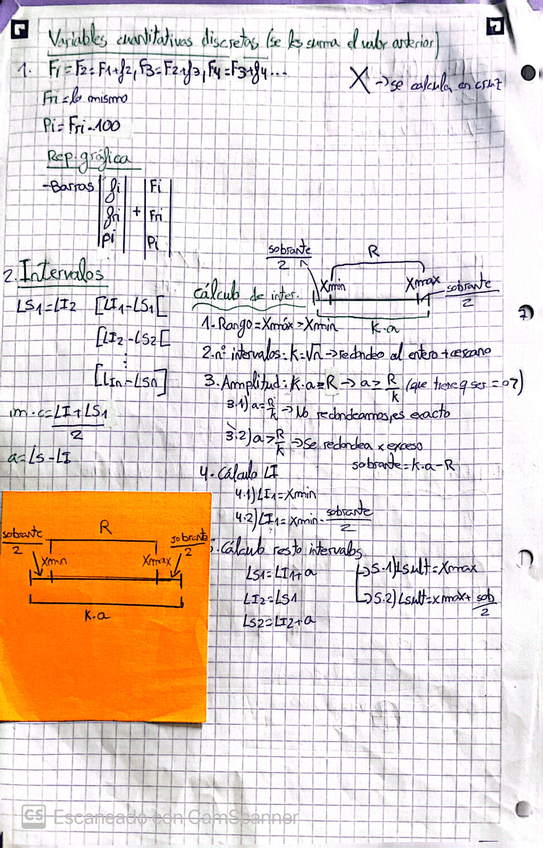 Variables cuantitativas discretas (se les suma el valor anterior)
1. Fi = F2 = F1+f2, F3 = F2+f3, F4 = F3+f4...
X → se calcula en
Fri = lo mismo
Pi = Fri · 100
Rep. gráfica
- Barras | fi | + | Fi |
fri Fri
pi Pi
2. Intervalos
LS1 = LI2 [LI1 - LS1[
[LI2 - LS2[
⋮
[LIn - LSn]
m.c = LI + LS1 / 2
a = LS - LI
sobrante / 2
R
Xmin
Xmax
sobrante / 2
K·a
Cálculo de inter.
1. Rango = Xmáx - Xmin
2. nº intervalos: K = √n → redondeo al entero + cercano
3. Amplitud: K·a ≥ R → a ≥ R/K (que tiene q ser = o ?)
3.1) a = R/K → No redondeamos, es exacto
3.2) a > R/K → Se redondea x exceso
sobrante = K·a - R
4. Cálculo LI
4.1) LI1 = Xmin
4.2) LI1 = Xmin - sobrante / 2
5. Cálculo resto intervalos
LS1 = LI1 + a
LI2 = LS1
LS2 = LI2 + a
↳ 5.1) LSult = Xmax
↳ 5.2) LSult = Xmax + sob / 2
sobrante / 2
R
sobrante / 2
Xmin
Xmax
K·a
CS Escaneado con CamScanner